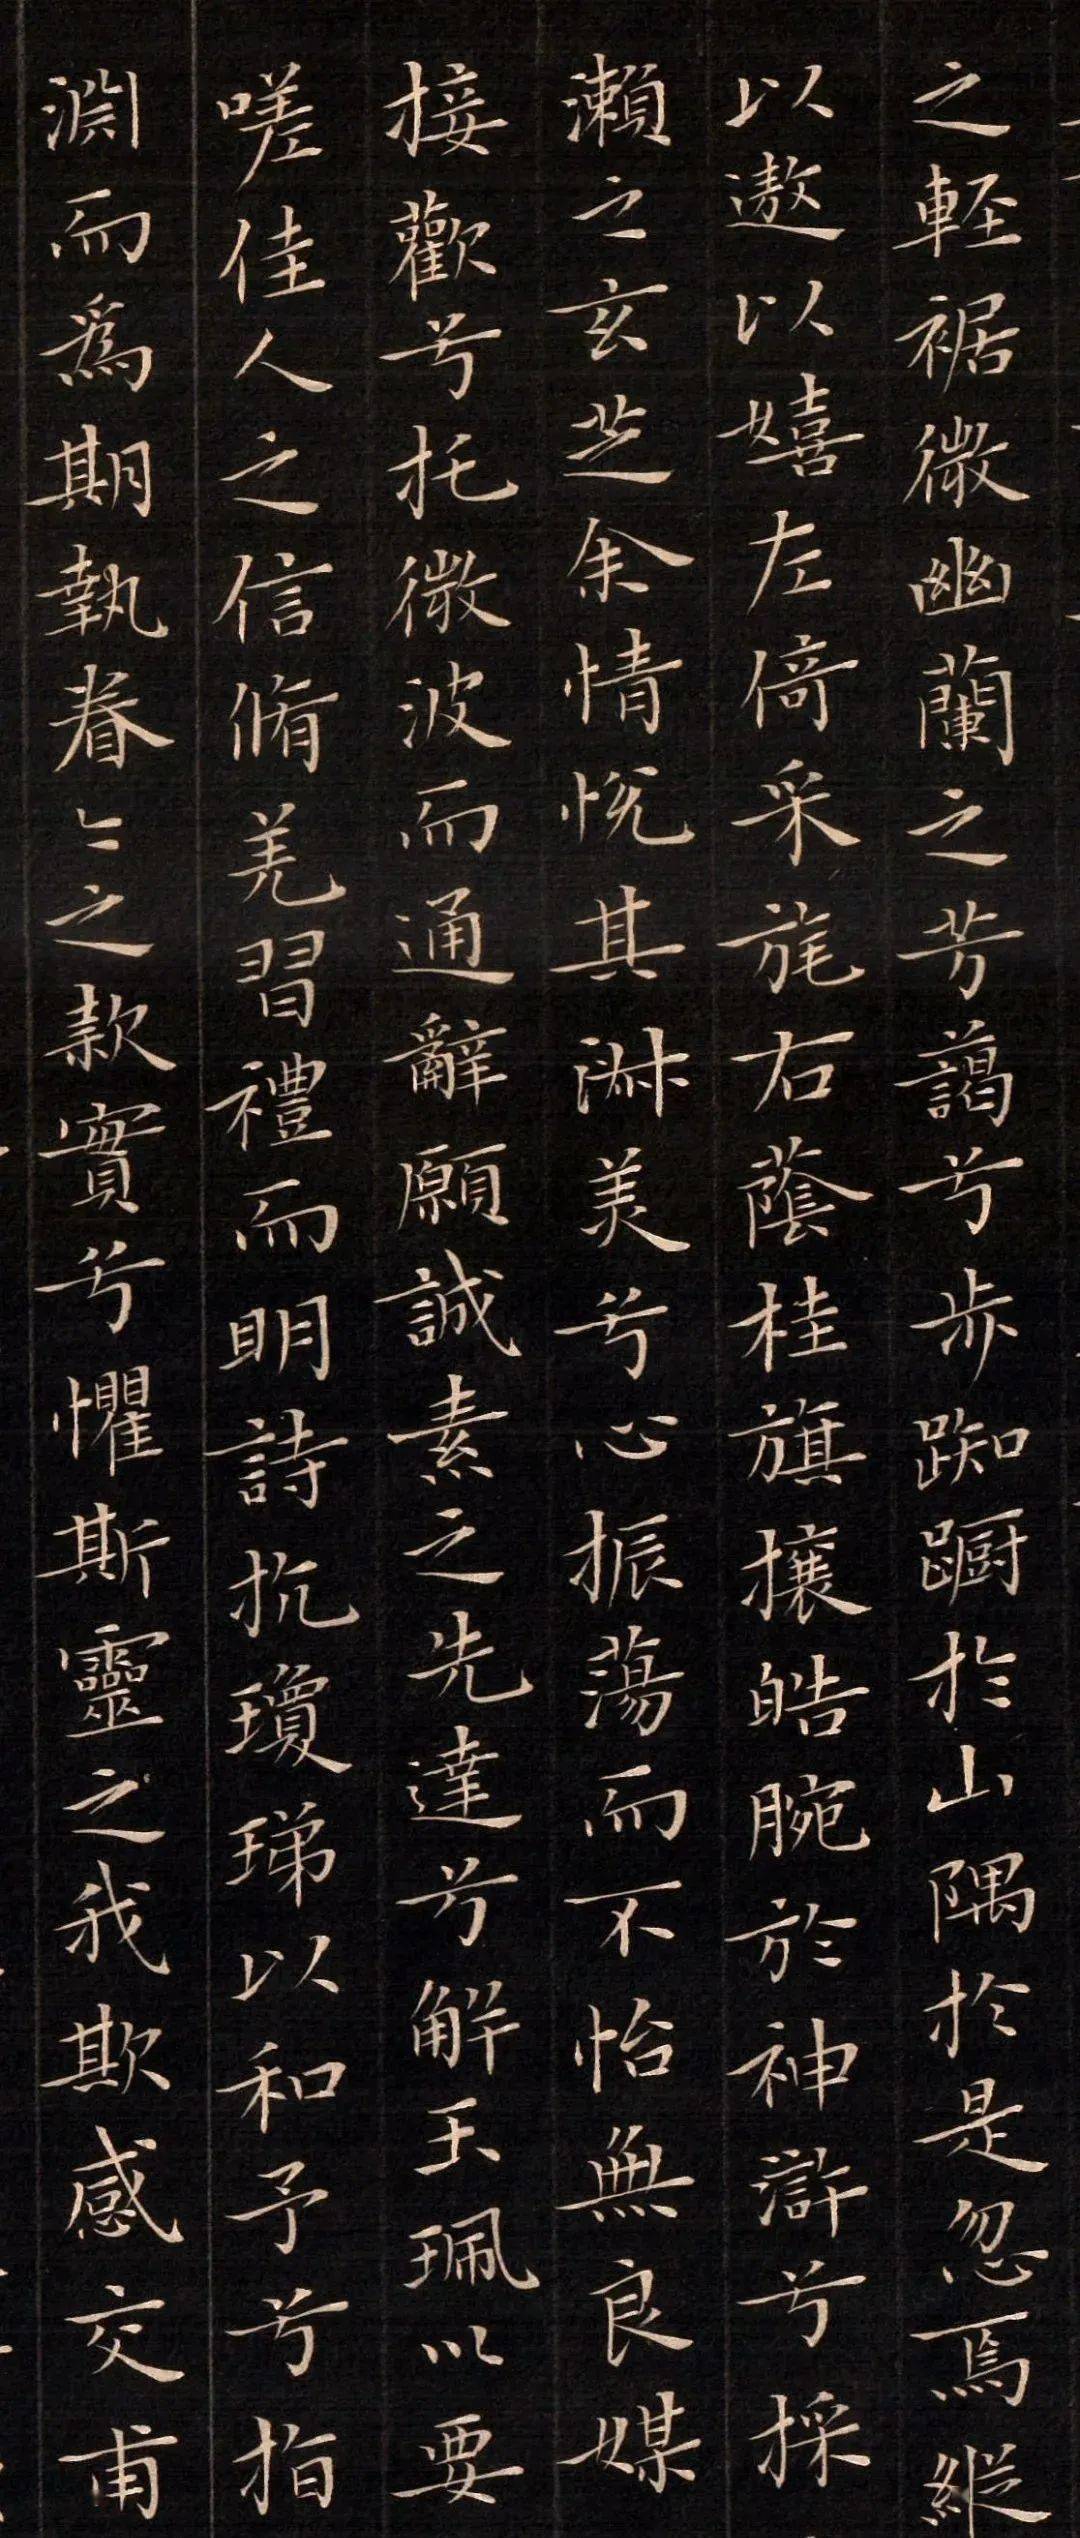 之輕裾微幽蘭之芳藹兮步踟蹰於山隅於是忽焉縱
以遨以嬉左倚采旄右蔭桂旗攘皓腕於神滸兮採
瀨之玄芝余情悅其淑美兮心振蕩而不怡無良媒
接歡兮托微波而通辭願誠素之先達兮解玉珮以要
嗟佳人之信脩羌習禮而明詩抗瓊珶以和予兮指
淵而為期執眷〻之款實兮懼斯靈之我欺感交甫